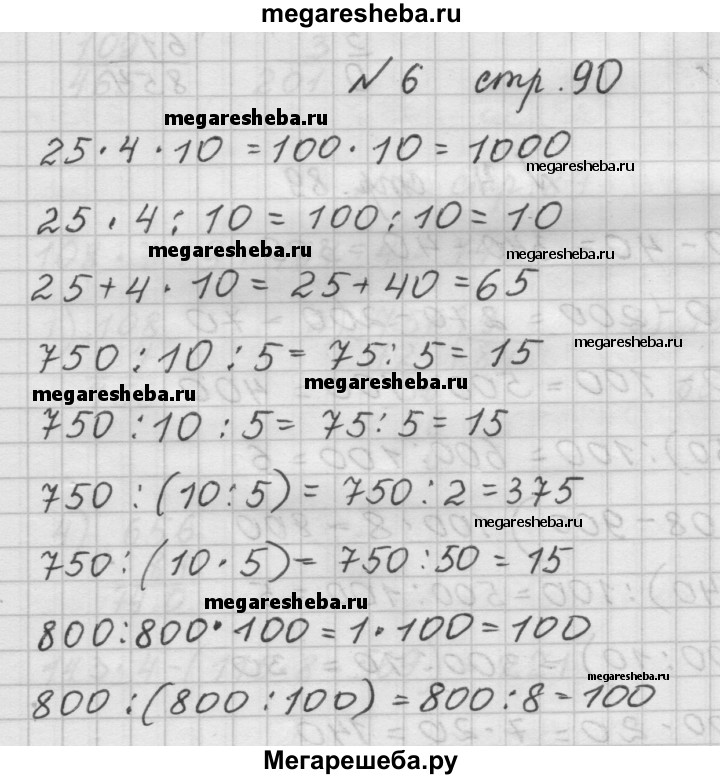 megaresheba.ru
№ 6 стр. 90
megaresheba.ru
25 · 4 · 10 = 100 · 10 = 1000
megaresheba.ru
25 · 4 : 10 = 100 : 10 = 10
megaresheba.ru
megaresheba.ru
25 + 4 · 10 = 25 + 40 = 65
750 : 10 : 5 = 75 : 5 = 15
megaresheba.ru
megaresheba.ru
megaresheba.ru
750 : 10 : 5 = 75 : 5 = 15
750 : (10 : 5) = 750 : 2 = 375
megaresheba.ru
750 : (10 · 5) = 750 : 50 = 15
megaresheba.ru
800 : 800 · 100 = 1 · 100 = 100
megaresheba.ru
800 : (800 : 100) = 800 : 8 = 100
Мегарешеба.ру